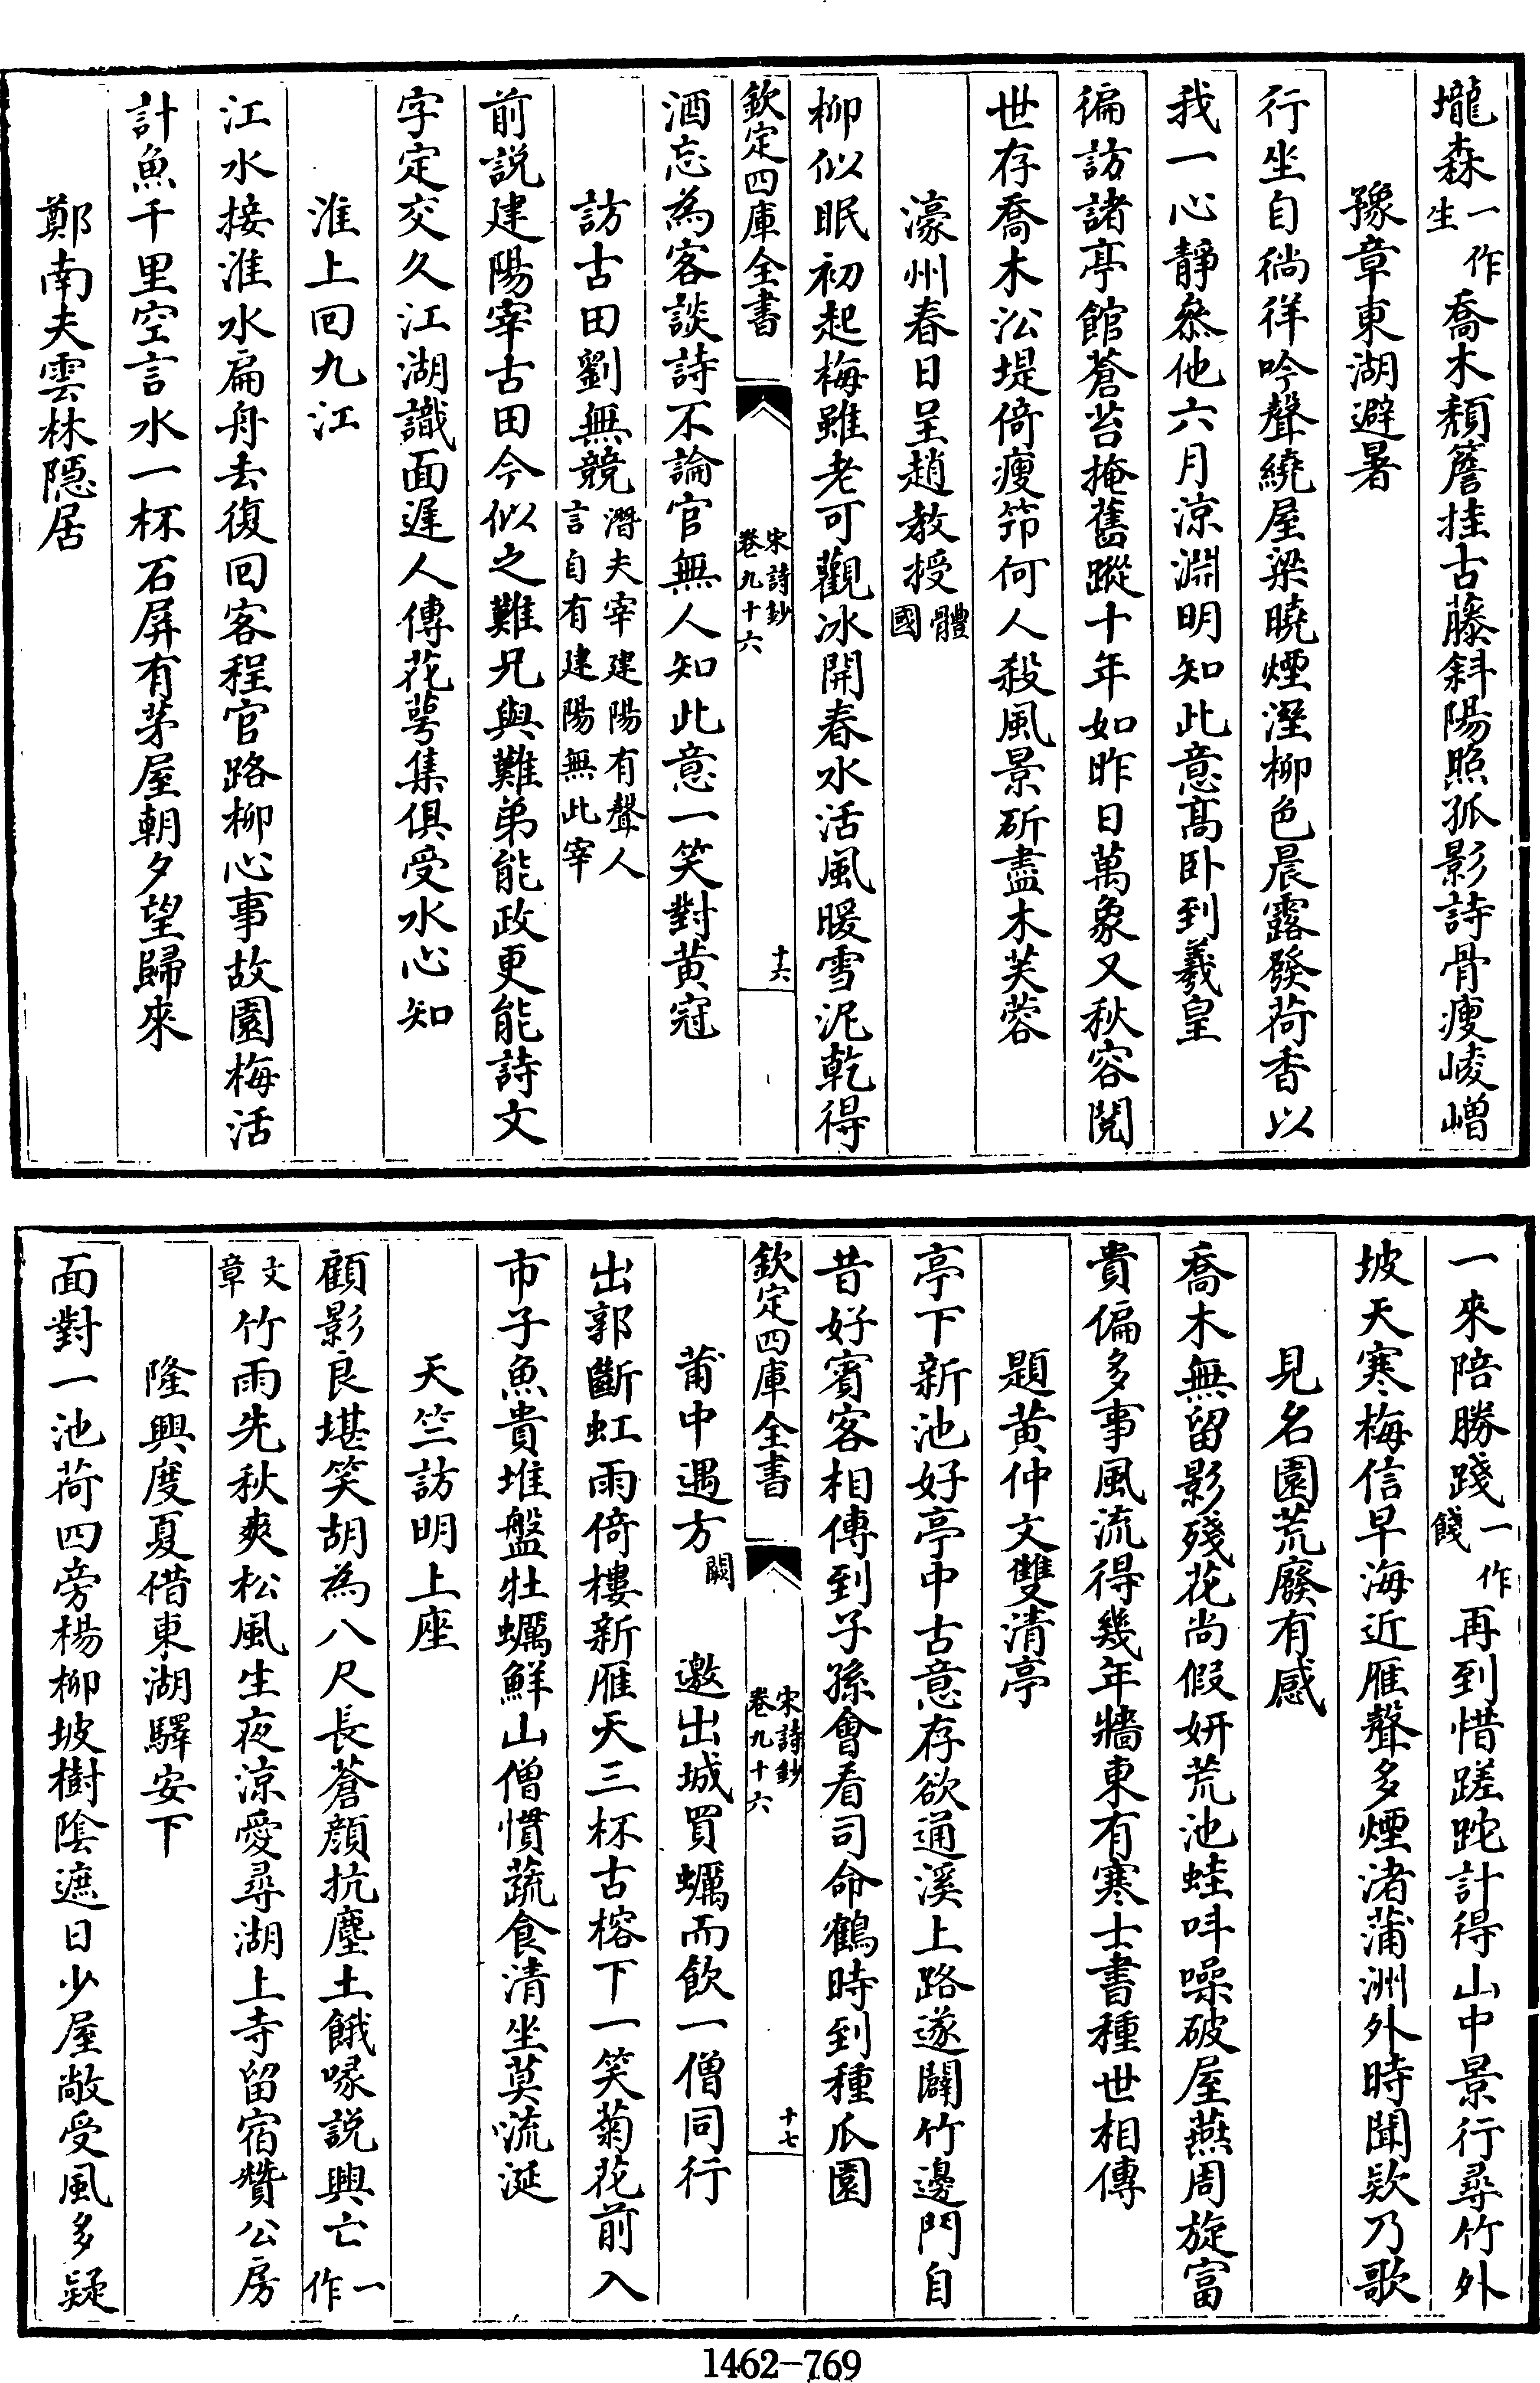 壠森一作生喬木頽簷挂古藤斜陽照孤影詩骨瘦崚嶒
豫章東湖避暑
行坐自徜徉吟聲繞屋梁曉煙溼柳色晨露發荷香以
我一心靜叅他六月涼淵明知此意髙卧到羲皇
徧訪諸亭館蒼苔掩舊蹤十年如昨日萬象又秋容閲
世存喬木㳂堤倚瘦笻何人殺風景斫盡木芙蓉
濠州春日呈趙教授體國
柳似眠初起梅雖老可觀冰開春水活風暖雪泥乾得
欽定四庫全書
宋詩鈔
卷九十六
十六
酒忘為客談詩不論官無人知此意一笑對黄冠
訪古田劉無競潛夫宰建陽有聲人言自有建陽無此宰
前説建陽宰古田今似之難兄與難弟能政更能詩文
字定交久江湖識面遲人傳花萼集俱受水心知
淮上回九江
江水接淮水扁舟去復回客程官路柳心事故園梅活
計魚千里空言水一杯石屏有茅屋朝夕望歸來
鄭南夫雲林隠居
一來陪勝踐一作餞再到惜蹉跎計得山中景行尋竹外
坡天寒梅信早海近雁聲多煙渚蒲洲外時聞欵乃歌
見名園荒廢有感
喬木無留影殘花尚假妍荒池蛙呌噪破屋燕周旋富
貴偏多事風流得幾年牆東有寒士書種世相傳
題黄仲文雙清亭
亭下新池好亭中古意存欲通溪上路遂闢竹邊門自
昔好賓客相傳到子孫會看司命鶴時到種瓜園
欽定四庫全書
宋詩鈔
卷九十六
十七
莆中遇方闕邀出城買蠣而飲一僧同行
出郭斷虹雨倚樓新雁天三杯古榕下一笑菊花前入
市子魚貴堆盤牡蠣鮮山僧慣蔬食清坐莫流涎
天竺訪明上座
顧影良堪笑胡為八尺長蒼顔抗塵土餓喙説興亡一作
文章竹雨先秋爽松風生夜涼愛尋湖上寺留宿贊公房
隆興度夏借東湖驛安下
面對一池荷四旁楊柳坡樹陰遮日少屋敞受風多疑
1462-769